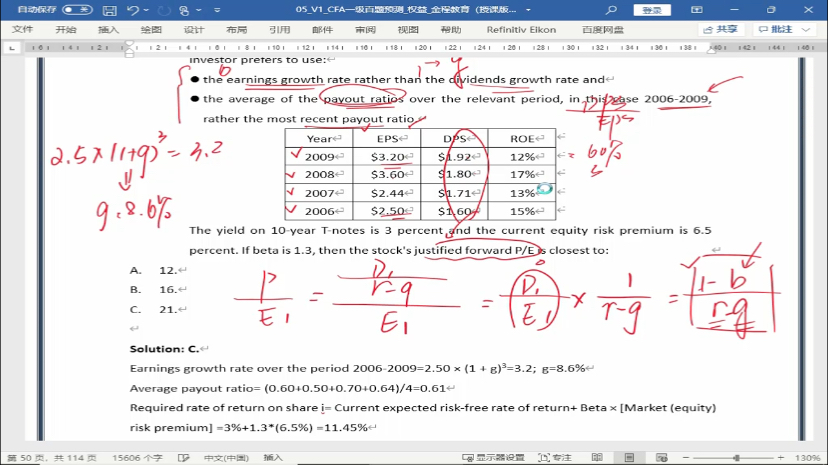 自动保存 关 05_V1_CFA一级百题预测_权益_全程教育 (授课版... 登录
文件 开始 插入 绘图 设计 布局 引用 邮件 审阅 视图 帮助 Refinitiv Eikon 百度网盘 共享 批注
investor prefers to use:
● the earnings growth rate rather than the dividends growth rate and
● the average of the payout ratios over the relevant period, in this case 2006-2009,
rather the most recent payout ratio.
Year EPS DPS ROE
2009 $3.20 $1.92 12%
2008 $3.60 $1.80 17%
2007 $2.44 $1.71 13%
2006 $2.50 $1.60 15%
2.5×(1+g)³=3.2
g=8.6%
= 60%
The yield on 10-year T-notes is 3 percent and the current equity risk premium is 6.5
percent. If beta is 1.3, then the stock's justified forward P/E is closest to:
A. 12.
B. 16.
C. 21.
P/E₁ = D₁/r-g / E₁ = (D₁/E₁) × 1/r-g = 1-b/r-g
Solution: C.
Earnings growth rate over the period 2006-2009=2.50 × (1 + g)³=3.2; g=8.6%
Average payout ratio= (0.60+0.50+0.70+0.64)/4=0.61
Required rate of return on share i= Current expected risk-free rate of return+ Beta × [Market (equity)
risk premium] =3%+1.3*(6.5%) =11.45%
第 50 页，共 114 页 15606 个字 中文(中国) 插入 显示器设置 专注 130%